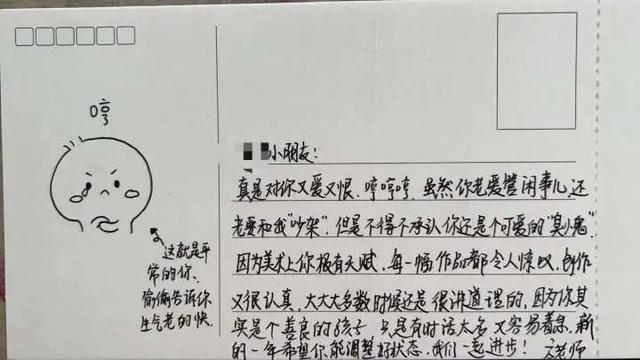 哼
这就是平
常的你、
偷偷告诉你
生气老的快.
小朋友:
真是对你又爱又恨.哼哼哼.虽然你老爱管闲事儿,还
老要和我"吵架".但是不得不承认你还是个可爱的"臭小鬼".
因为美术上你极有天赋,每一幅作品都令人惊叹,创作
又很认真,大大大多数时候还是很讲道理的,因为你其
实是个善良的孩子 只是有时话太多 又容易着急.新
的一年希望你能调整好状态,我们一起进步! 文老师